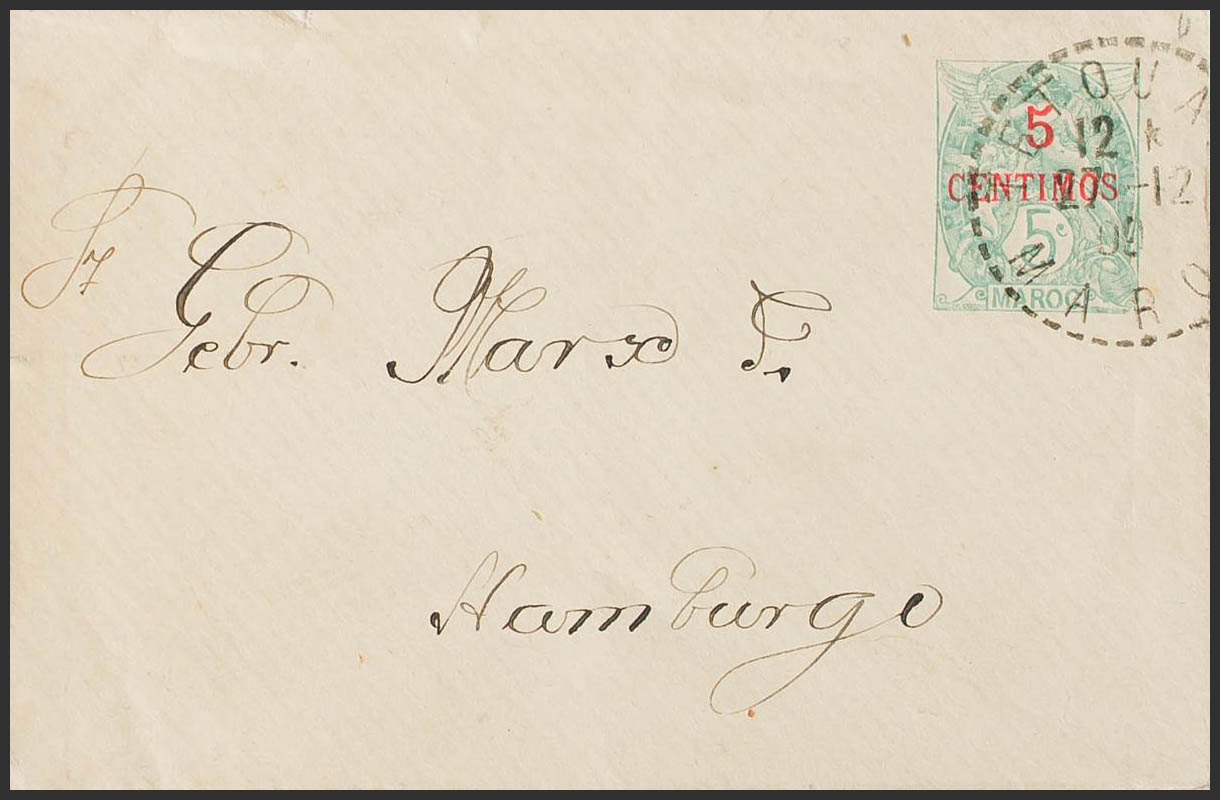 5
CENTIMOS
5c
MAROC
TETOUA
12 *
27 -12
09
MARO
Gebr. Marx F.
Hamburgo